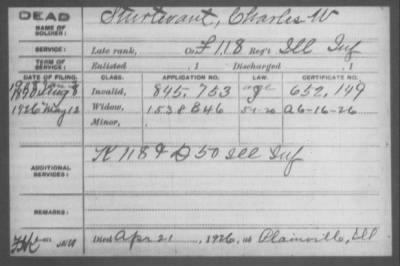 DEAD
NAME OF SOLDIER: Sturtevant, Charles W
SERVICE: Late rank, Co. F 118 Reg't Ill Inf
TERM OF SERVICE: Enlisted , 1 Discharged , 1
DATE OF FILING. CLASS. APPLICATION NO. LAW. CERTIFICATE NO.
Invalid, 845,753 age 652,149
1926 May 12 Widow, 1538846 5-1-20 A6-16-26
Minor,
ADDITIONAL SERVICES: K 118 & D 50 Ill Inf
REMARKS:
Died Apr 21, 1926, at Plainville, Ill